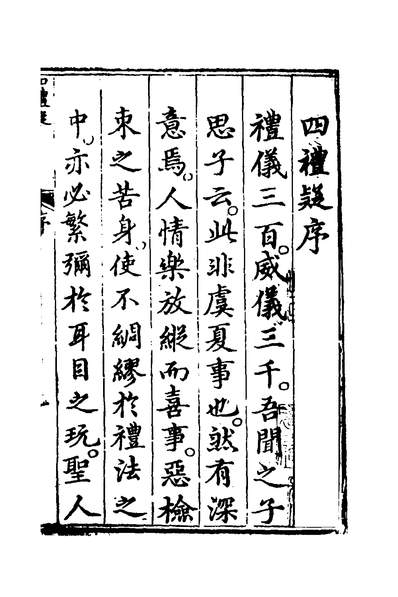 四禮疑序
禮儀三百。威儀三千。吾聞之子
思子云。此非虞夏事也。然有深
意焉。人情樂放縱而喜事。惡檢
束之苦身、使不綢繆於禮法之
中、亦必繁彌於耳目之玩。聖人